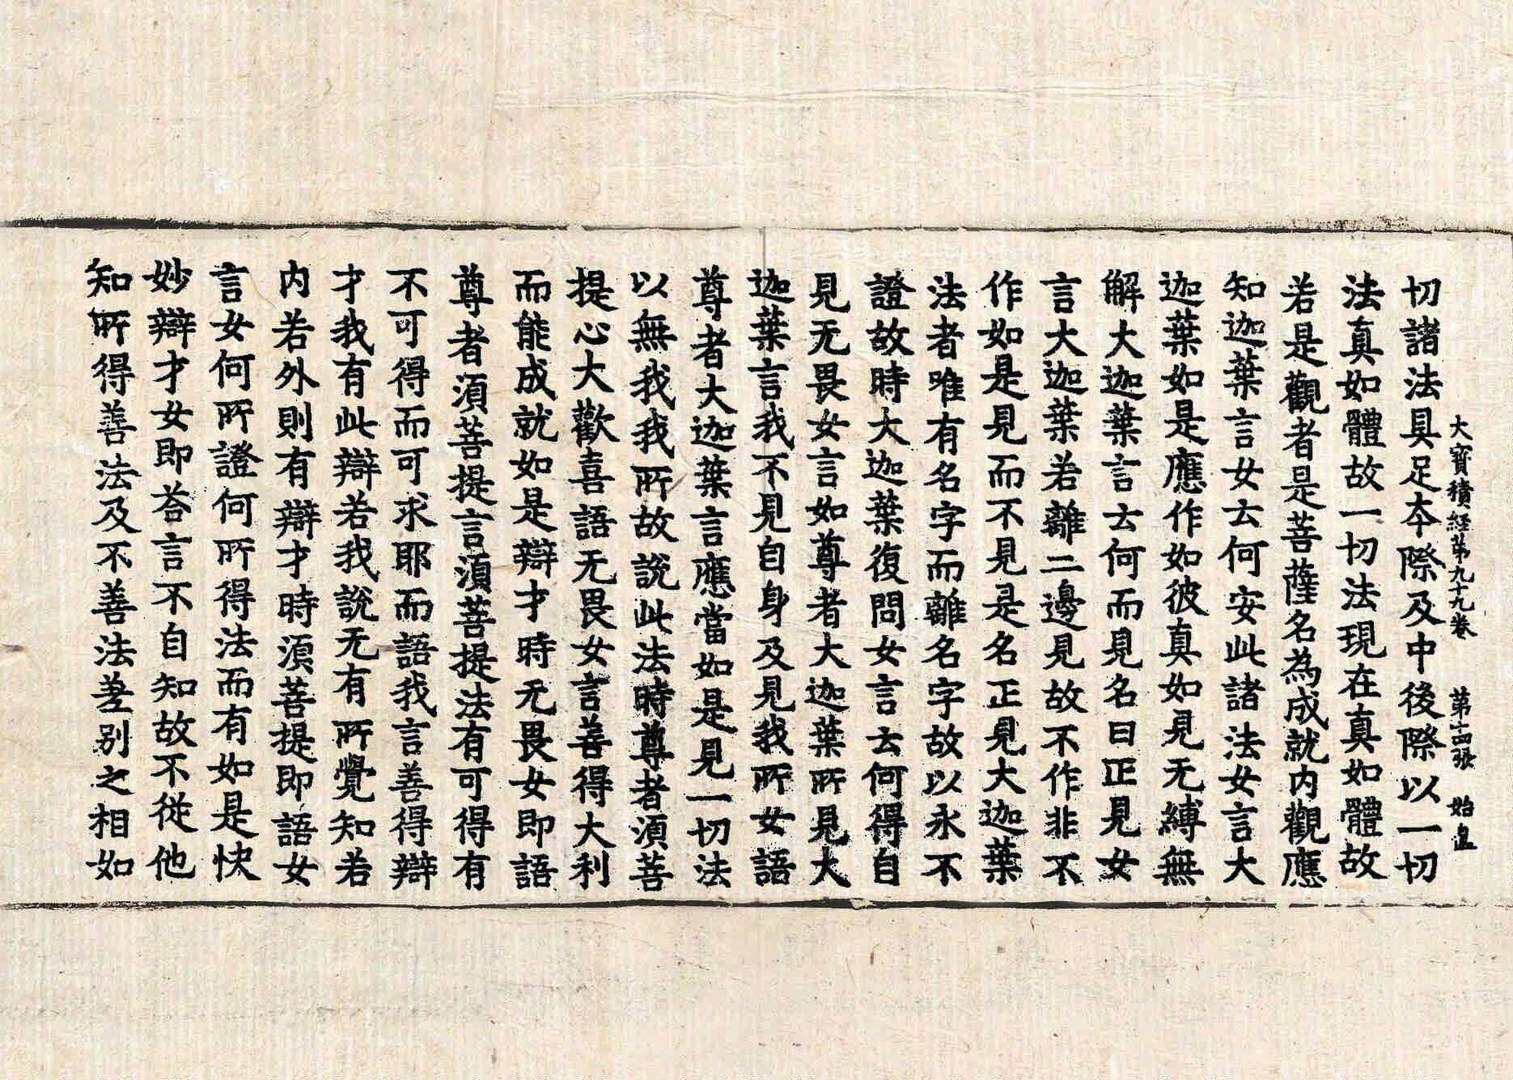 大寶積經第九十九卷　第十四張　始
切諸法具足本際及中後際以一切
法真如體故一切法現在真如體故
若是觀者是菩薩名為成就内觀應
知迦葉言女云何安此諸法女言大
迦葉如是應作如彼真如見无縛無
解大迦葉言云何而見名曰正見女
言大迦葉若離二邊見故不作非不
作如是見而不見是名正見大迦葉
法者唯有名字而離名字故以永不
證故時大迦葉復問女言云何得自
見无畏女言如尊者大迦葉所見大
迦葉言我不見自身及見我所女語
尊者大迦葉言應當如是見一切法
以無我我所故說此法時尊者湏菩
提心大歡喜語无畏女言善得大利
而能成就如是辯才時无畏女即語
尊者湏菩提言湏菩提法有可得有
不可得而可求耶而語我言善得辯
才我有此辯若我說无有所覺知若
内若外則有辯才時湏菩提即語女
言女何所證何所得法而有如是快
妙辯才女即荅言不自知故不從他
知所得善法及不善法差别之相如